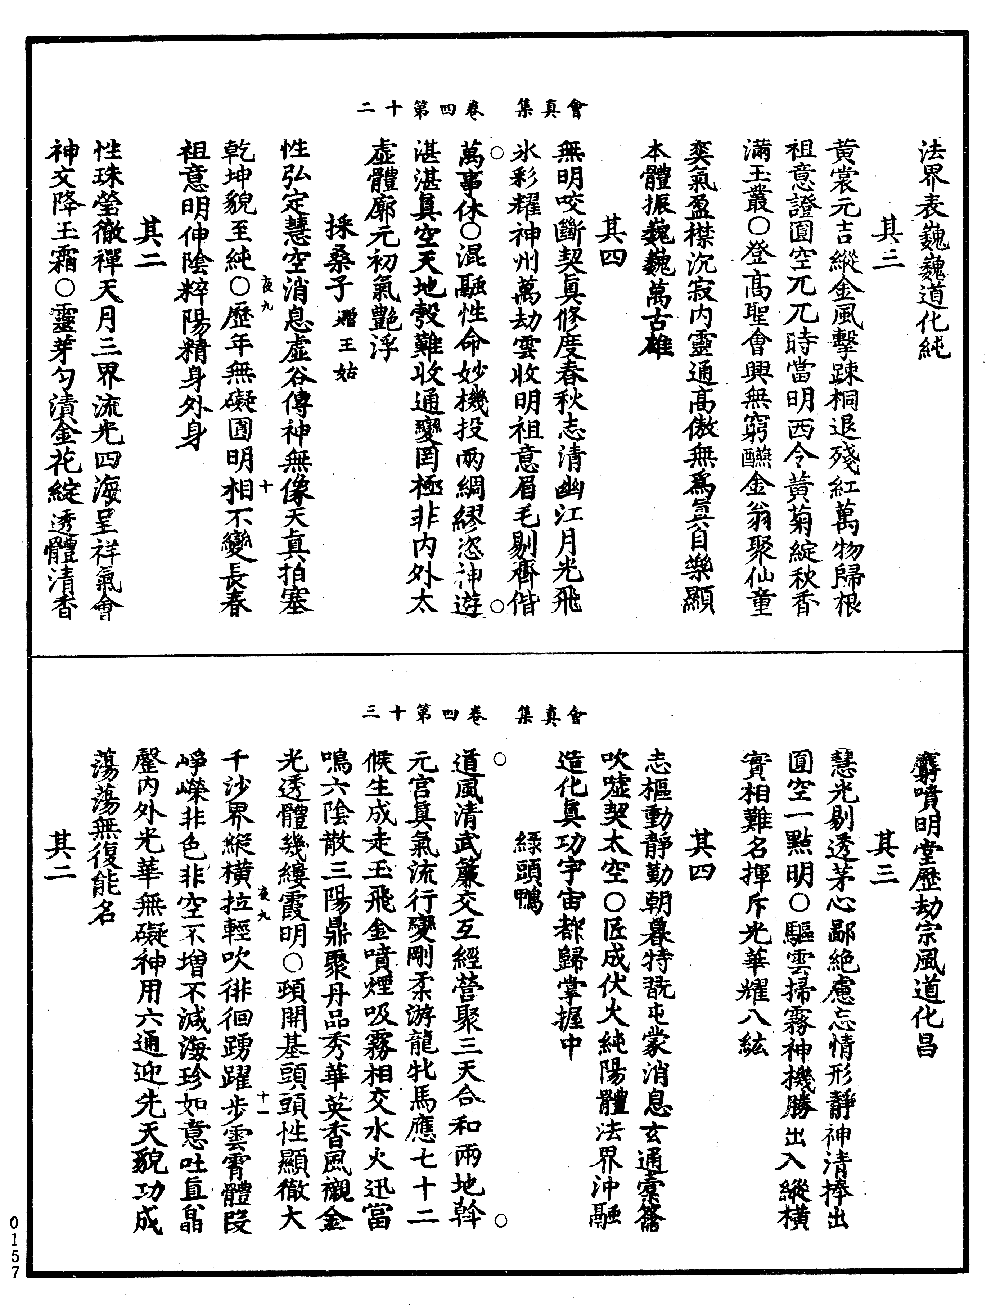 會真集　卷四第十二
法界表巍巍道化純
其三
黃裳元吉縱金風擊踈桐退殘紅萬物歸根
祖意證圓空兀兀時當明西令黃菊綻秋香
滿玉叢○登高聖會興無窮醮金翁聚仙童
奕氣盈楪沉寂內靈通高傲無為眞自樂顯
本體振巍巍萬古雄
其四
無明咬斷契眞修度春秋志清幽江月光飛
氷彩耀神州萬劫雲收明祖意眉毛剔齊偕
萬事休○混融性命妙機投兩綢繆恣神遊
湛湛眞空天地彀難收通變罔極非內外太
虛體廓元初氣艷浮
採桑子 贈王姑
性弘定慧空消息虛谷傳神無像天真拍塞
乾坤貌至純○歷年無礙圓明相不變長春
祖意明伸陰粹陽精身外身
夜九
十
其二
性珠瑩徹禪天月三界流光四海呈祥氣會
神交降玉霜○靈芽勻漬金花綻透體清香
會真集　卷四第十三
麝噴明堂歷劫宗風道化昌
其三
慧光剔透茅心鄙絕慮忘情形靜神清捧出
圓空一點明○驅雲掃霧神機勝出入縱橫
實相難名揮斥光華耀八紘
其四
志樞動靜勤朝暮特翫屯蒙消息玄通橐籥
吹噓契太空○匠成伏火純陽體法界沖融
造化眞功宇宙都歸掌握中
綠頭鴨
道風清武簾交互經營聚三天合和兩地斡
元宫眞氣流行變剛柔游龍牝馬應七十二
候生成走玉飛金噴煙吸霧相交水火迅當
鳴六陰散三陽鼎聚丹品秀華英香風襯金
光透體幾縷霞明○頭開基頭頭性顯徹大
千沙界縱橫拉輕吹徘徊踴躍步雲霄體段
夜九
十一
崢嶸非色非空不增不減海珍如意吐眞晶
壓內外光華無礙神用六通迎先天貌功成
蕩蕩無復能名
其二
0157